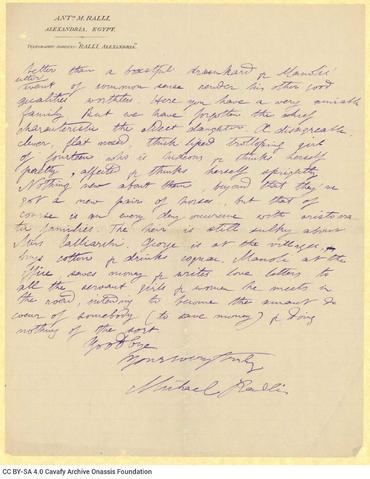 ANT.º M. RALLI,
ALEXANDRIA, EGYPT.
TELEGRAPHIC ADDRESS: "RALLI, ALEXANDRIA"
better than a boastful drunkard & Manoli's
utter want of common sense render his other good
qualities worthless. Here you have a very amiable
family. But we have forgotten the chief
characteristic the eldest daughter. A disagreable
clever, flat nosed, thick liped trolloping girl
of fourteen who is hideous & thinks herself
pretty, affected & thinks herself sprightly
Nothing new about them, beyond that they've
got a new pair of horses, but that of
course is an every day occurence with aristocra
tic families. The heir is still sulky about
Miss Calliarchi. George is at the villages
buys cotton & drinks cognac. Manoli at the
office, saves money & writes love letters to
all the servant girls & women he meets in
the road, intending to become the amant de
coeur of somebody (to save money) & doing
nothing of the sort
Goodbye
Yours very truly
Michael Ralli
CC BY-SA 4.0 Cavafy Archive Onassis Foundation